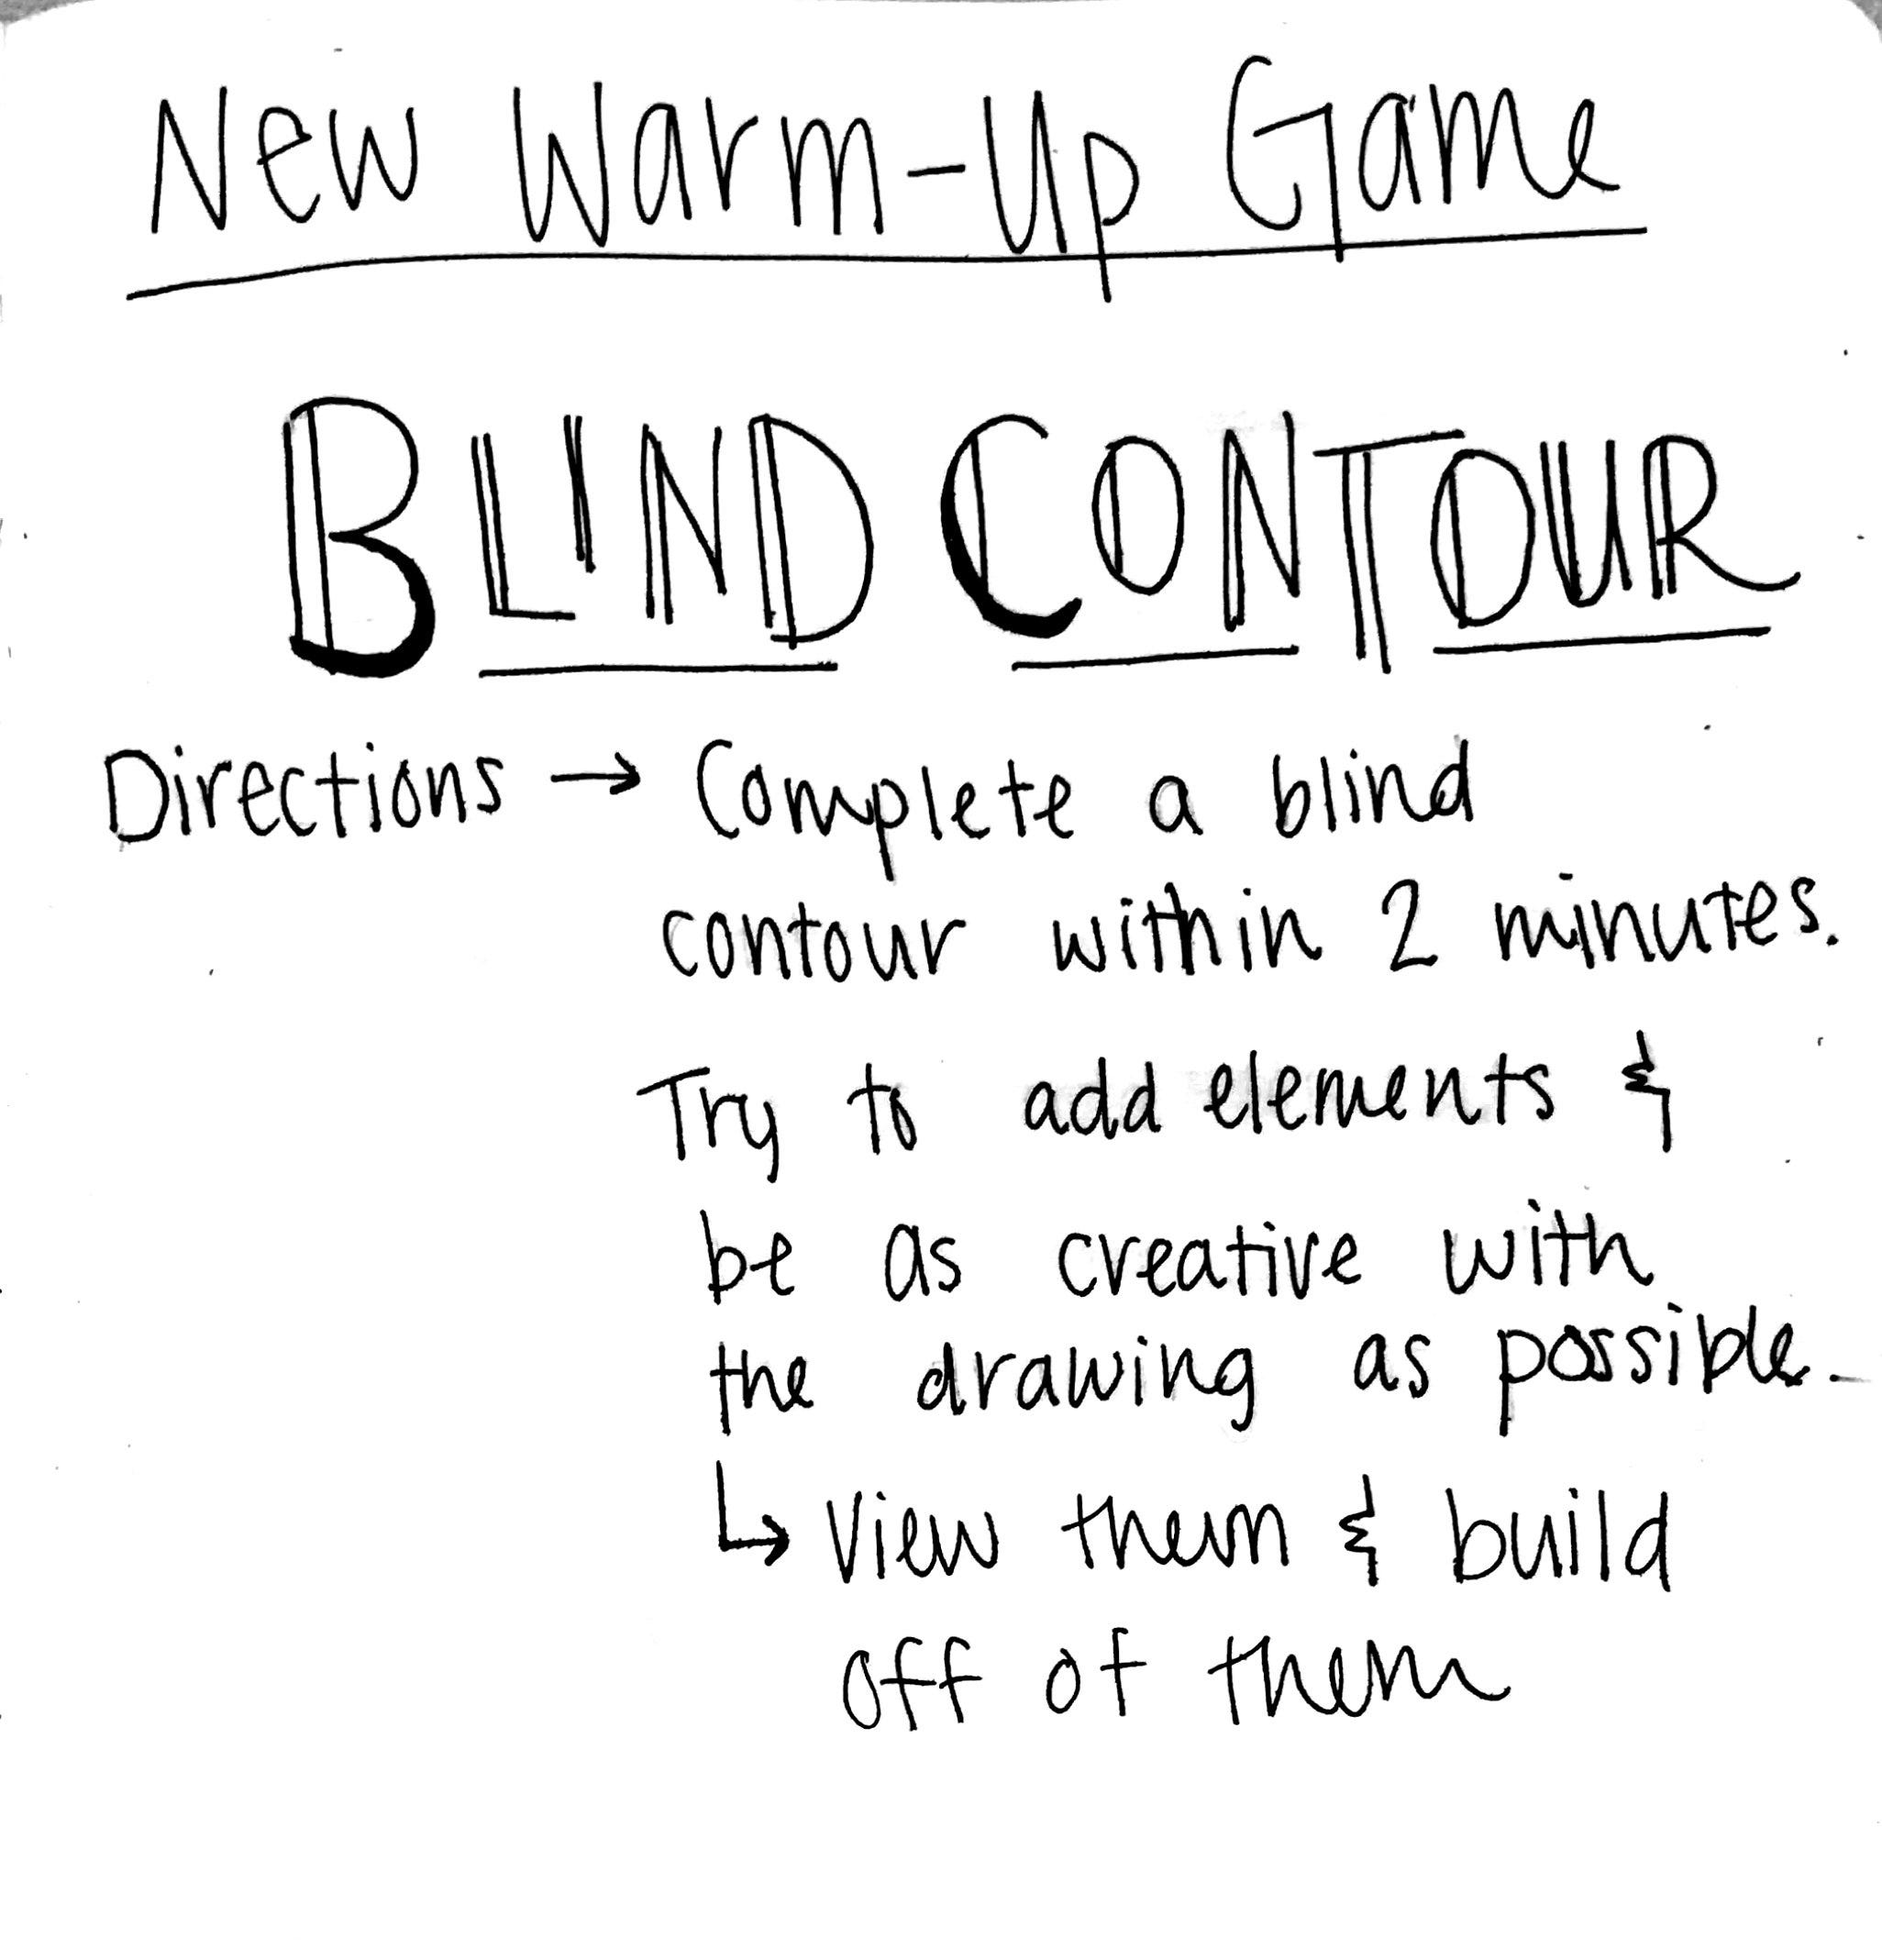 New Warm-Up Game
BLIND CONTOUR
Directions → Complete a blind
contour within 2 minutes.
Try to add elements &
be as creative with
the drawing as possible.
↳ View them & build
off of them